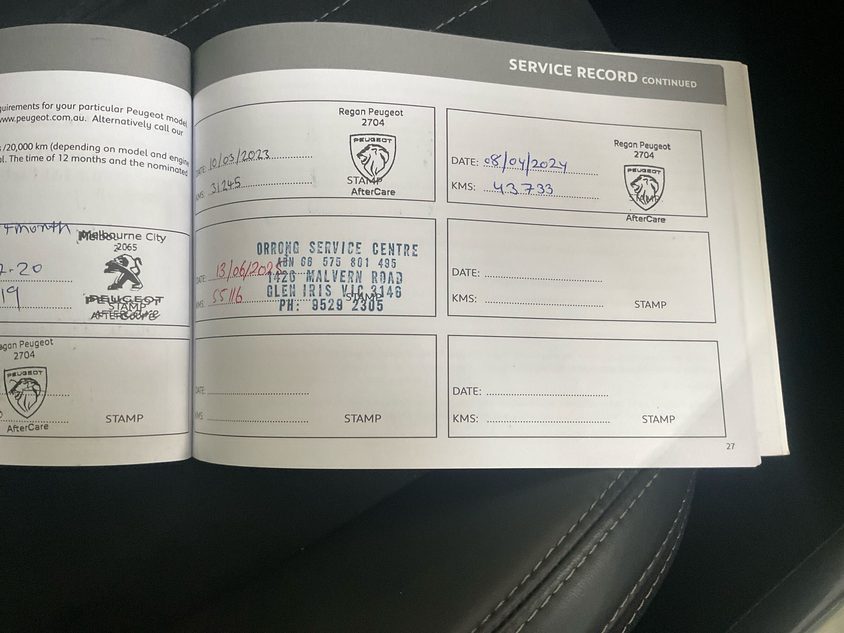 quirements for your particular Peugeot model
www.peugeot.com.au. Alternatively call our
/20,000 km (depending on model and engine
ol. The time of 12 months and the nominated
month
Melbourne City
2065
.20
19
PEUGEOT
STAMP
egan Peugeot
2704
PEUGEOT
STAMP
AfterCare
SERVICE RECORD CONTINUED
Regan Peugeot
2704
PEUGEOT
DATE: 10/03/2023
KMS: 31245
STAMP
AfterCare
Regan Peugeot
2704
PEUGEOT
DATE: 08/04/2024
KMS: 43733
STAMP
AfterCare
ORRONG SERVICE CENTRE
ABN 66 575 801 495
DATE: 13/06/202
1426 MALVERN ROAD
KMS: 55116
GLEN IRIS VIC 3146
STAMP
PH: 9529 2305
DATE:
KMS:
STAMP
DATE:
KMS:
STAMP
DATE:
KMS:
STAMP
27